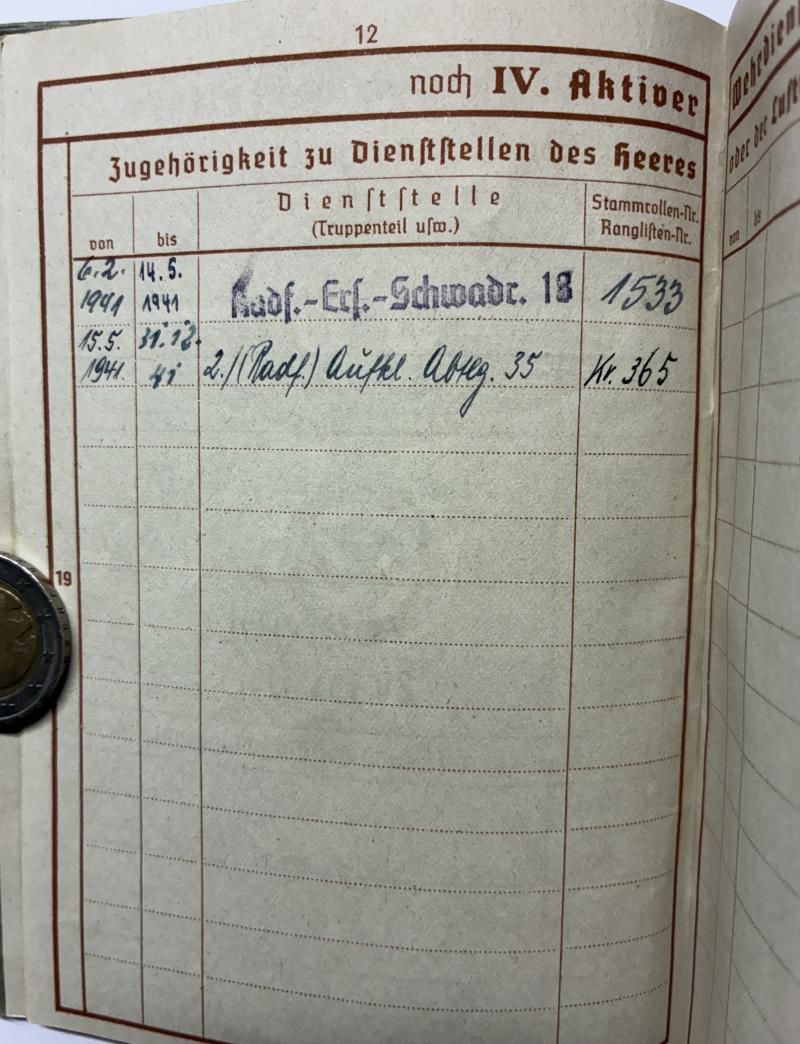 12
noch IV. Aktiver
Zugehörigkeit zu Dienststellen des Heeres
von
bis
Dienststelle
(Truppenteil usw.)
Stammrollen-Nr.
Ranglisten-Nr.
6.2. 14.5.
1941 1941 Radf.-Ers.-Schwadr. 18 1533
15.5. 31.12.
1941. 41 2./(Radf.) Aufkl. Abtlg. 35 Kr. 365
19
Wehrdien
oder der Luft
von
bis